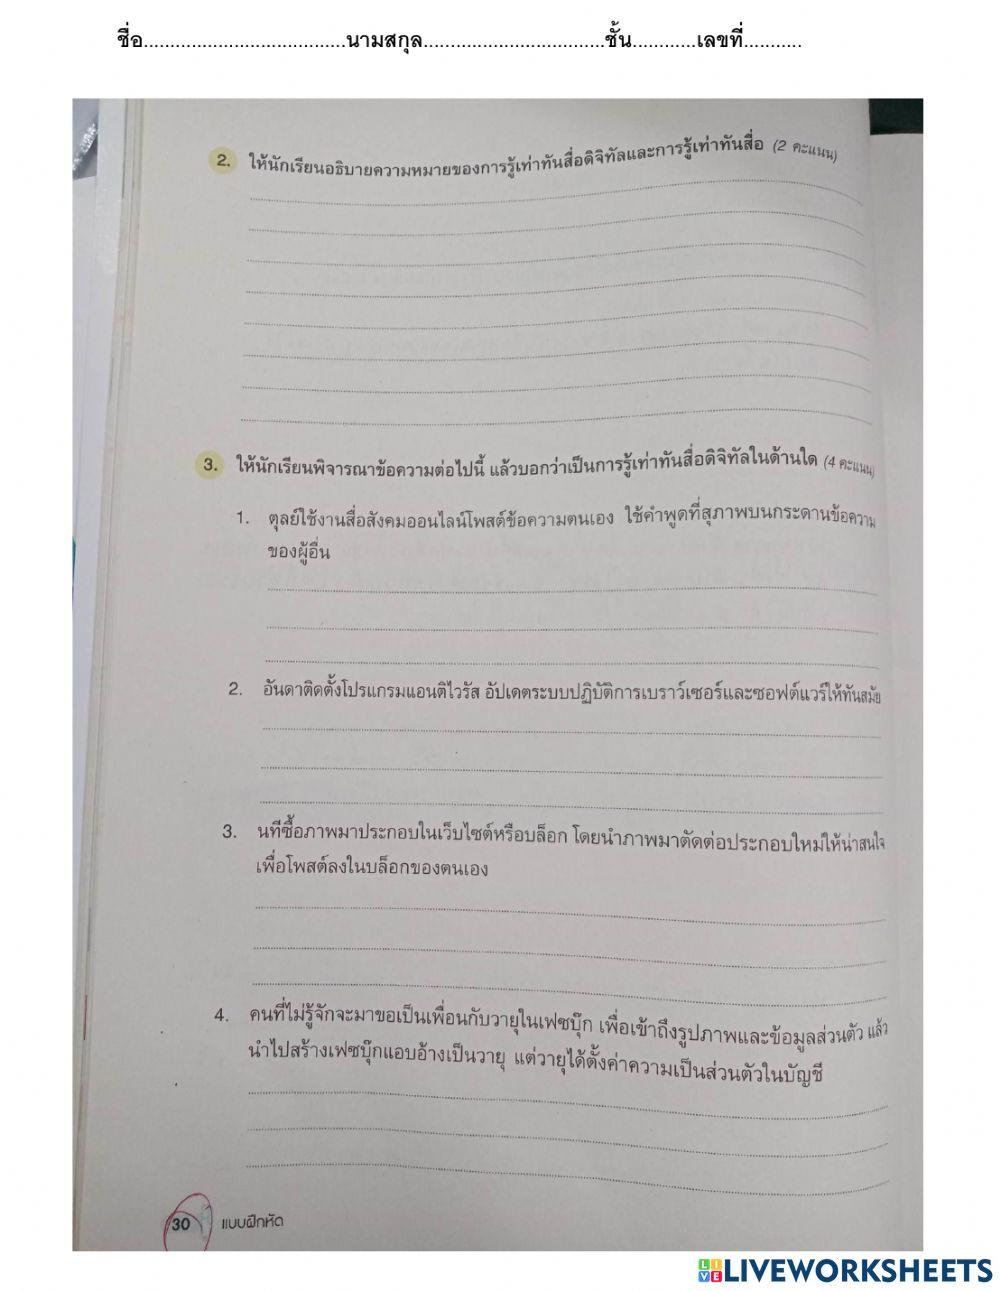 ชื่อ......................................นามสกุล..................................ชั้น............เลขที่...........
2. ให้นักเรียนอธิบายความหมายของการรู้เท่าทันสื่อดิจิทัลและการรู้เท่าทันสื่อ (2 คะแนน)
3. ให้นักเรียนพิจารณาข้อความต่อไปนี้ แล้วบอกว่าเป็นการรู้เท่าทันสื่อดิจิทัลในด้านใด (4 คะแนน)
1. ตุลย์ใช้งานสื่อสังคมออนไลน์โพสต์ข้อความตนเอง ใช้คำพูดที่สุภาพบนกระดานข้อความ
ของผู้อื่น
2. อันดาติดตั้งโปรแกรมแอนติไวรัส อัปเดตระบบปฏิบัติการเบราว์เซอร์และซอฟต์แวร์ให้ทันสมัย
3. นทีซื้อภาพมาประกอบในเว็บไซต์หรือบล็อก โดยนำภาพมาตัดต่อประกอบใหม่ให้น่าสนใจ
เพื่อโพสต์ลงในบล็อกของตนเอง
4. คนที่ไม่รู้จักจะมาขอเป็นเพื่อนกับวายุในเฟซบุ๊ก เพื่อเข้าถึงรูปภาพและข้อมูลส่วนตัว แล้ว
นำไปสร้างเฟซบุ๊กแอบอ้างเป็นวายุ แต่วายุได้ตั้งค่าความเป็นส่วนตัวในบัญชี
30 แบบฝึกหัด
LIVEWORKSHEETS